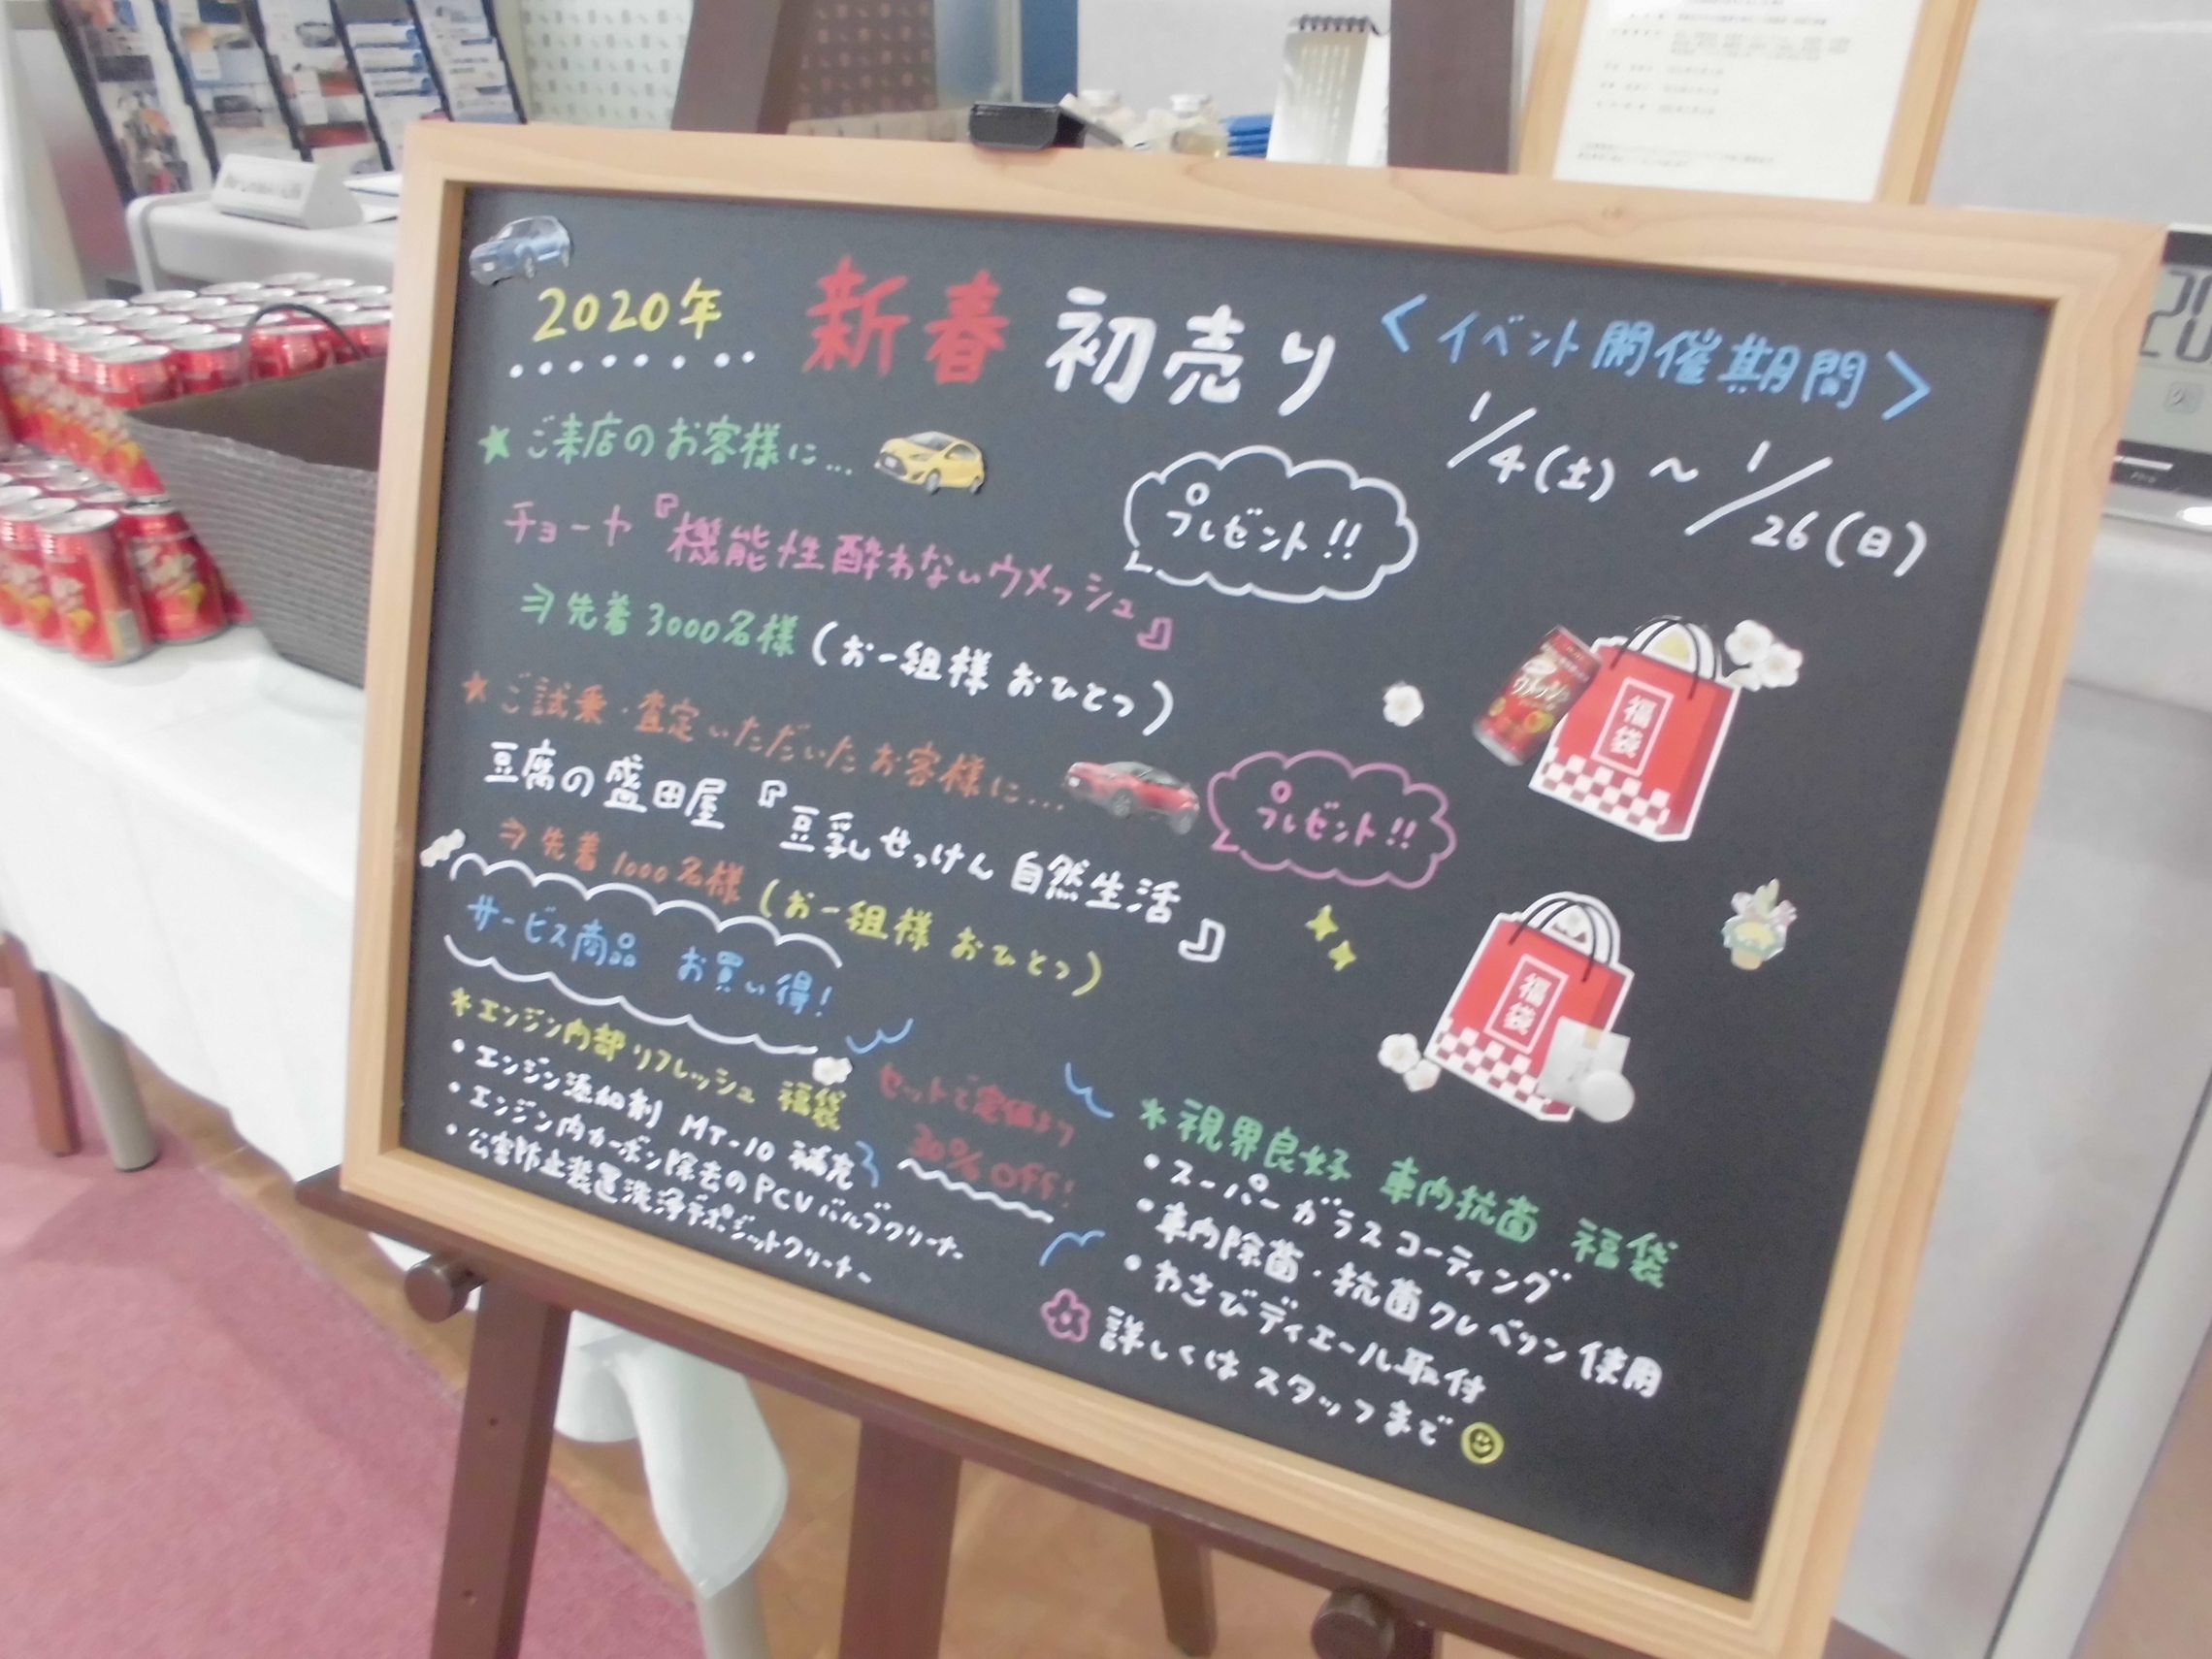 2020年 新春 初売り
<イベント開催期間>
1/4(土) ～ 1/26(日)
★ご来店のお客様に…
チョーヤ『機能性酔わないウメッシュ』
プレゼント!!
⇒先着3000名様(お一組様 おひとつ)
★ご試乗・査定いただいたお客様に…
プレゼント!!
豆腐の盛田屋『豆乳せっけん 自然生活』
⇒先着1000名様(お一組様 おひとつ)
福袋
福袋
サービス商品 お買い得!
*エンジン内部リフレッシュ 福袋
・エンジン添加剤 MT-10 補充
・エンジン内カーボン除去のPCVバルブクリーナー
・公害防止装置洗浄デポジットクリーナー
セットで定価より
30%OFF!
*視界良好 車内抗菌 福袋
・スーパーガラスコーティング
・車内除菌・抗菌クレベリン使用
・わさびディエール取付
詳しくはスタッフまで